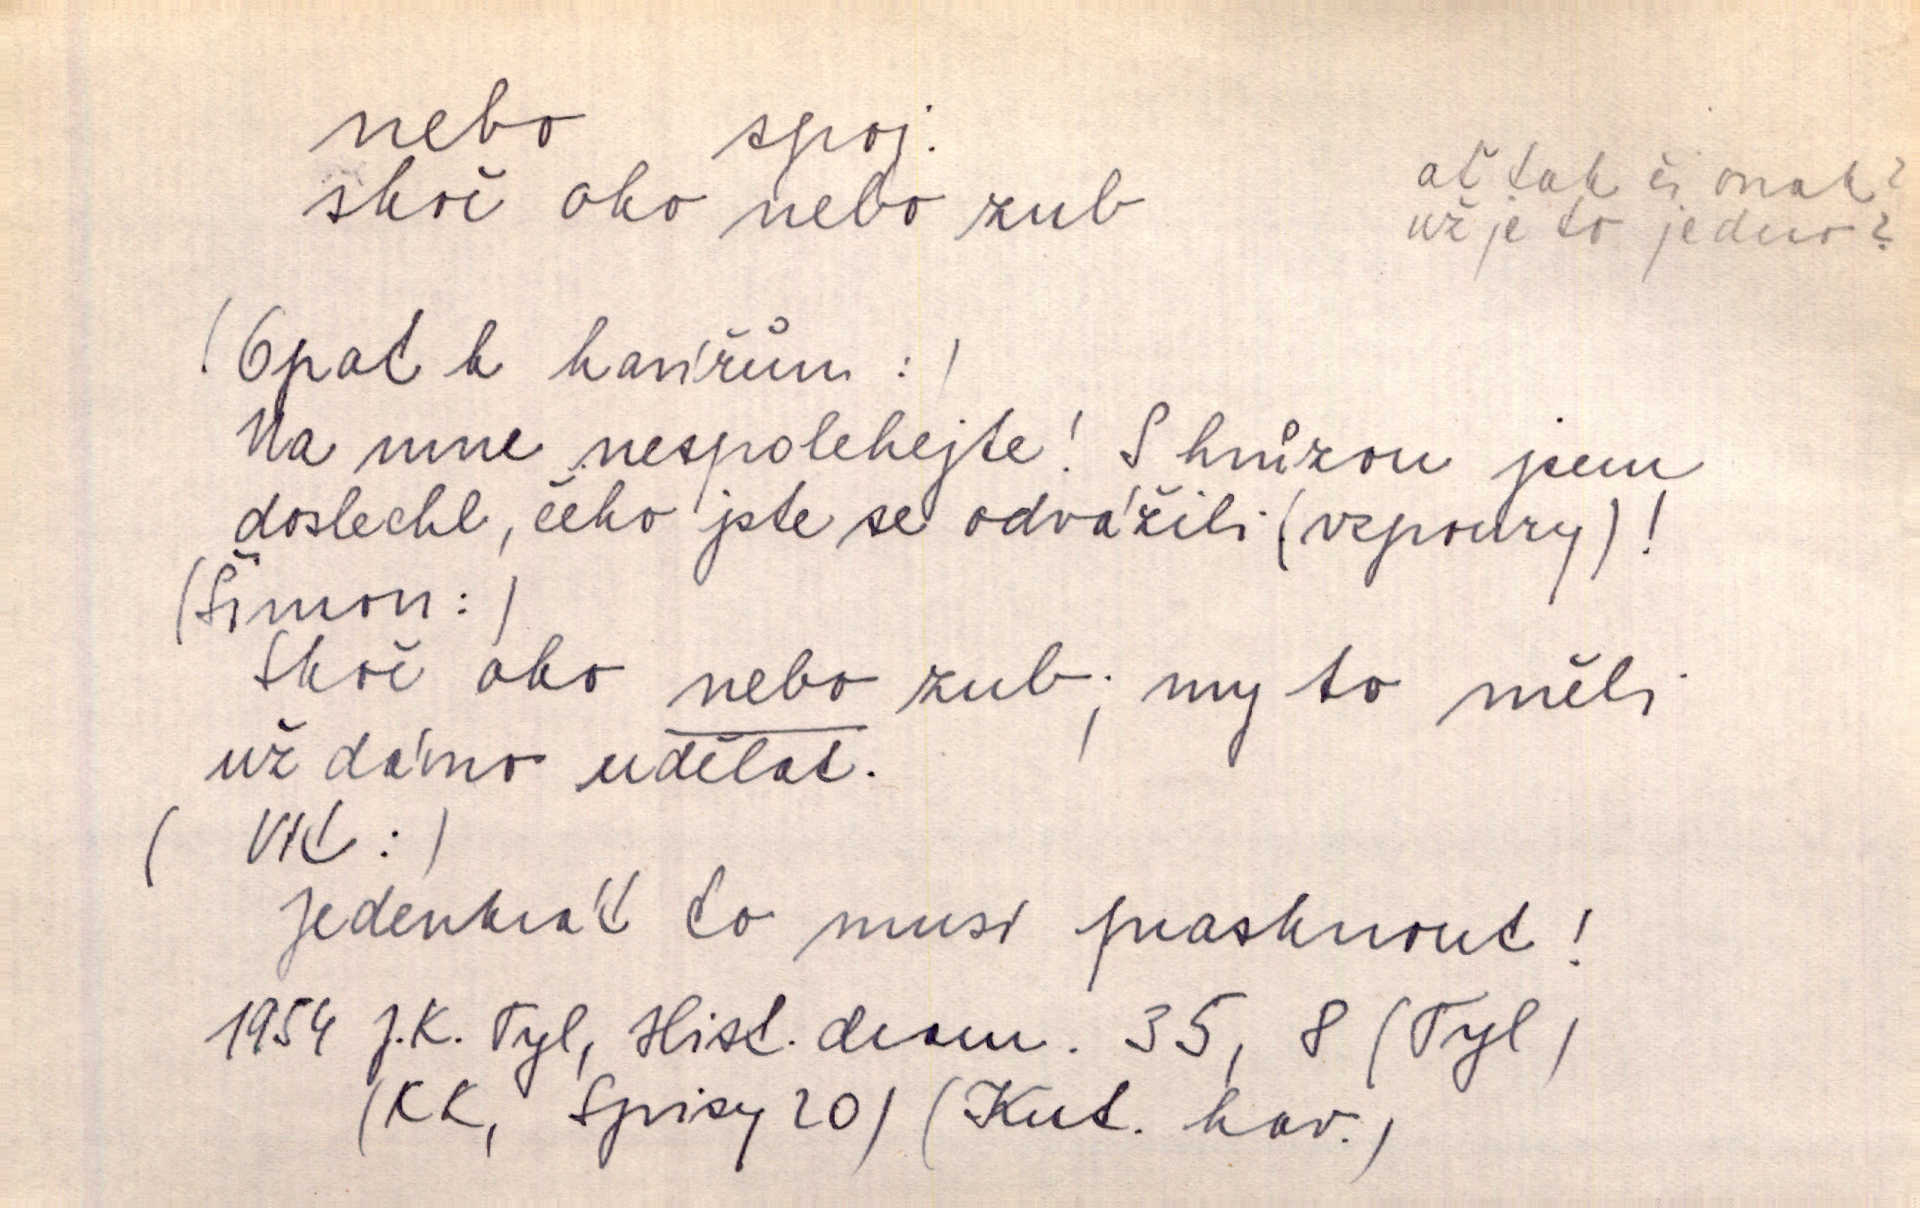 nebo spoj.
skoč oko nebo zub
ať tak či onak?
už je to jedno?
(Opat k havířům:)
Na mne nespolehejte! S hrůzou jsem
doslechl, čeho jste se odvážili (vzpoury)!
(Šimon:)
Skoč oko nebo zub; my to měli
už dávno udělat.
(Vít:)
Jedenkrát to musí prasknout!
1954 J.K. Tyl, Hist. dram. 35, 8 (Tyl)
(KK, Spisy 20) (Kut. hav.)